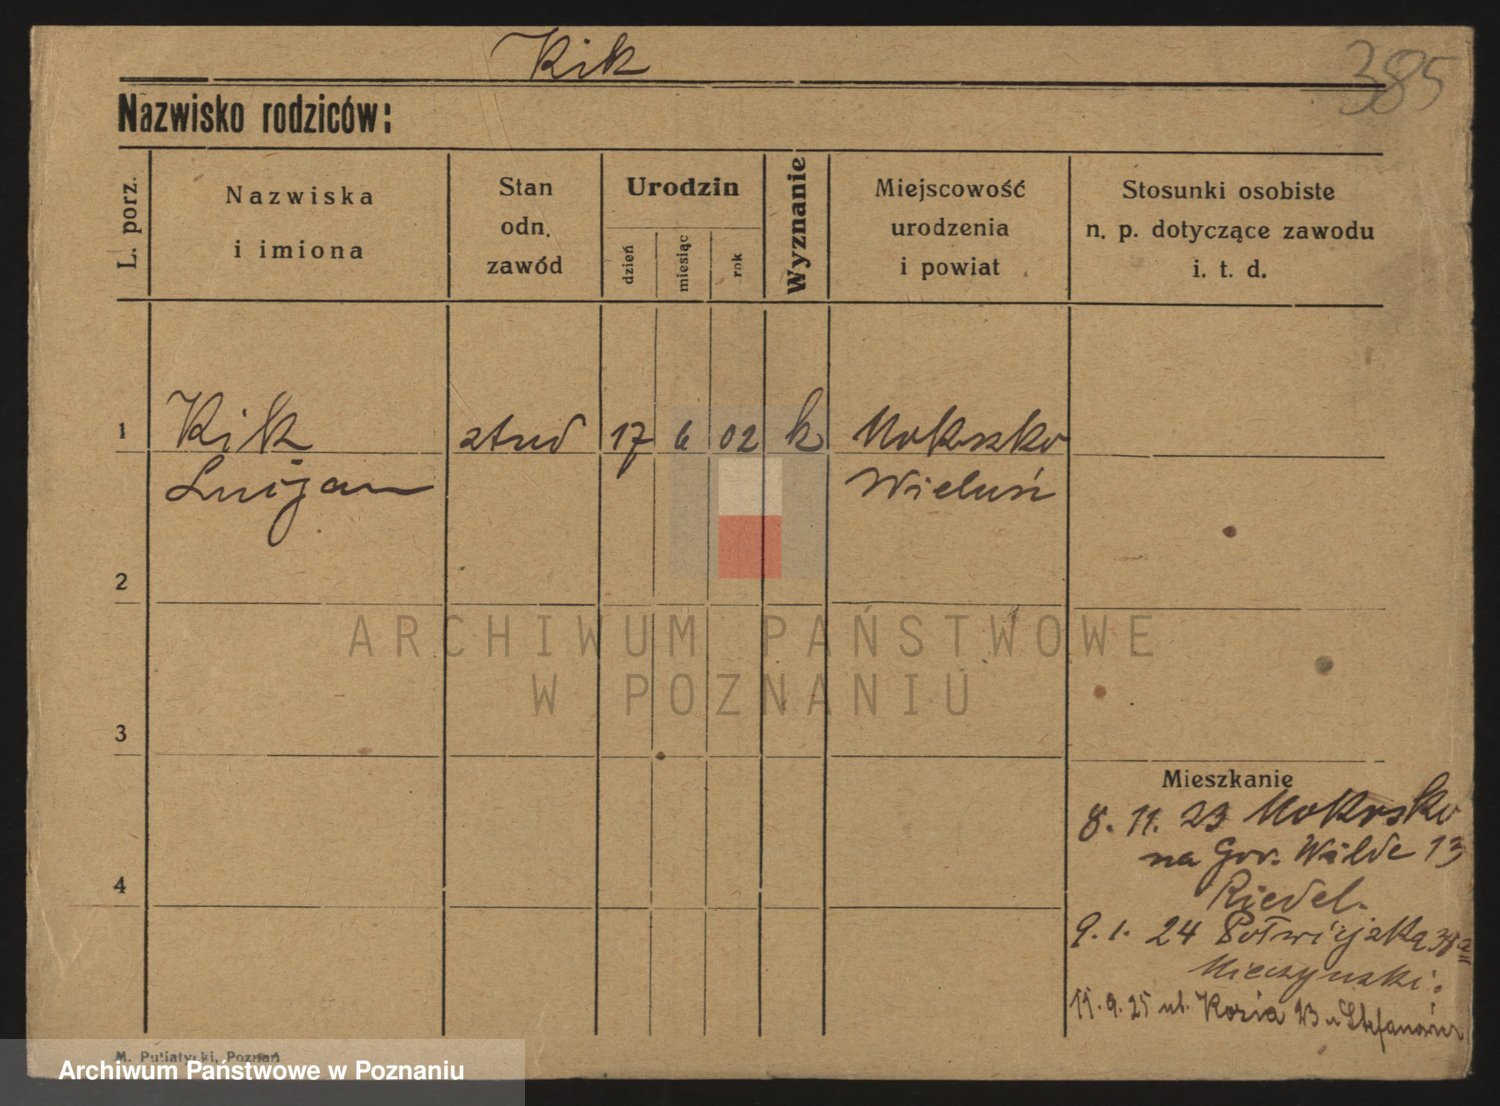 Kik
385
Nazwisko rodziców:
L. porz.
Nazwiska
i imiona
Stan
odn.
zawód
Urodzin
dzień
miesiąc
rok
Wyznanie
Miejscowość
urodzenia
i powiat
Stosunki osobiste
n. p. dotyczące zawodu
i. t. d.
1 Kik stud 17 6 02 k Mokrsko
Lucjan Wieluń
2
ARCHIWUM PAŃSTWOWE
W POZNANIU
3
Mieszkanie
8. 11. 23 Mokrsko
na Gór. Wilde 13
4
Riedel.
9. 1. 24
Mieczynski.
11. 9. 25 ul. Kozia 23
M. Putiatycki, Poznań
Archiwum Państwowe w Poznaniu